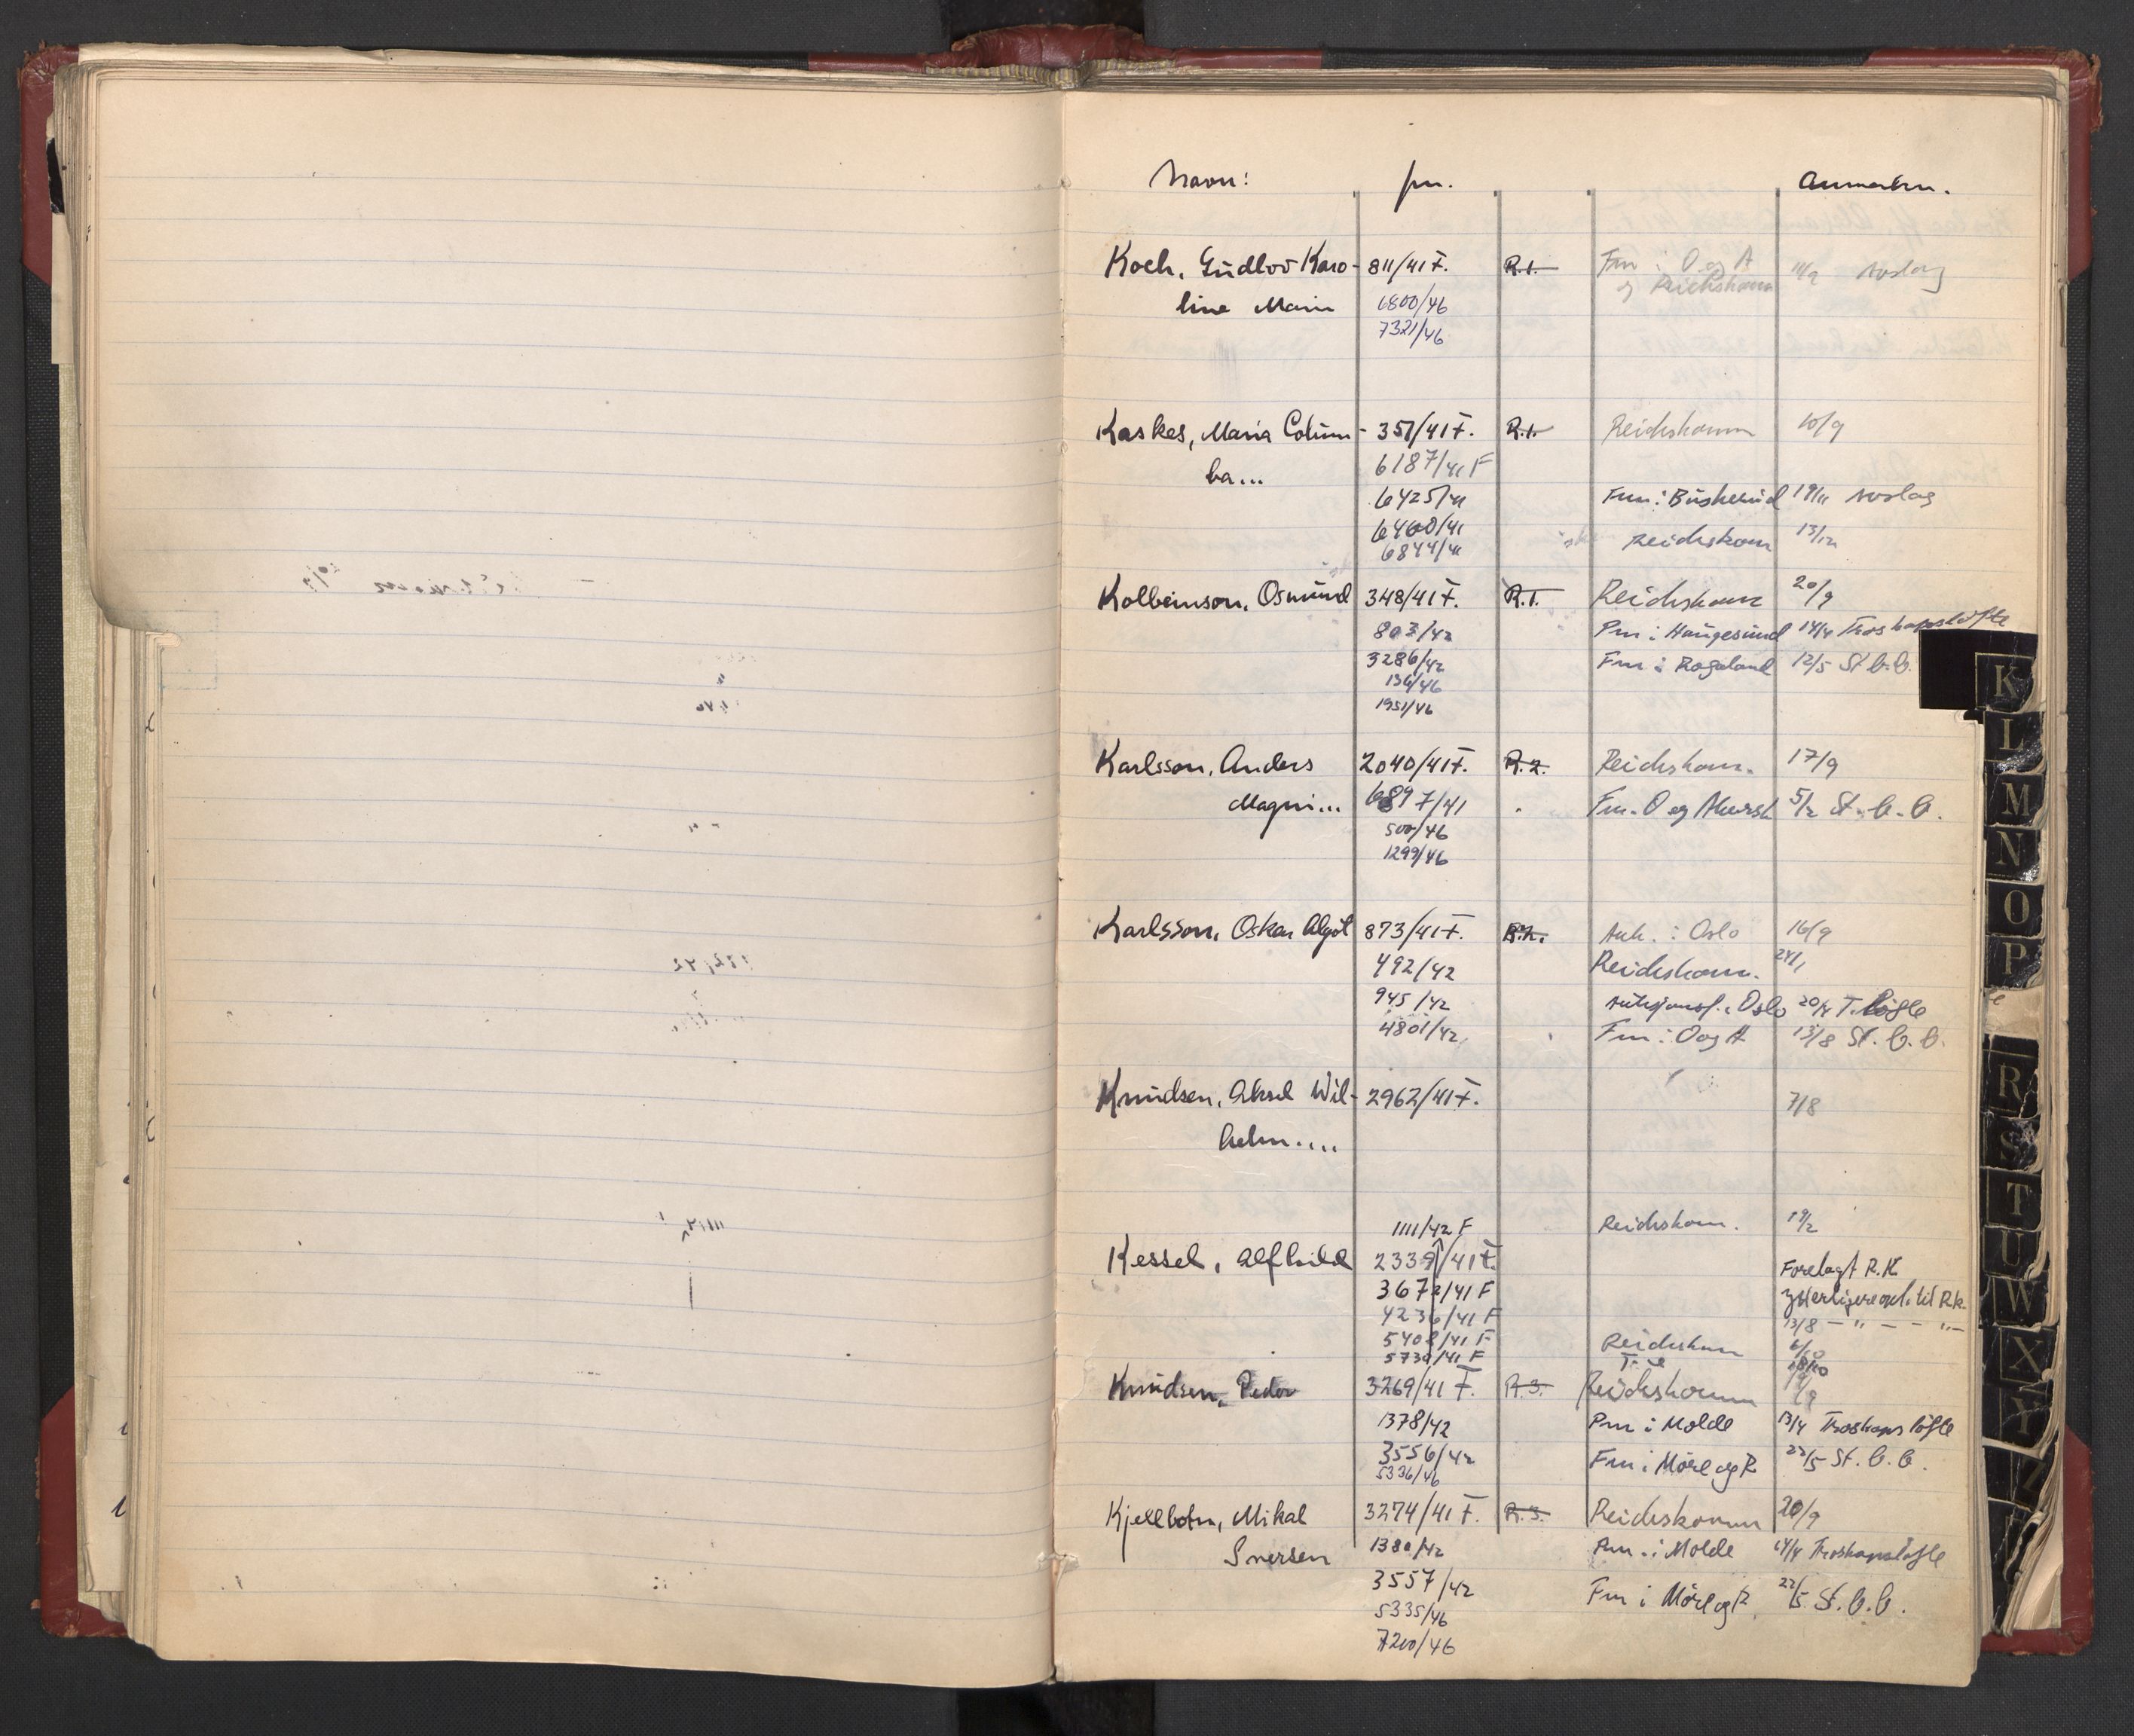 Navn: jnr. Anmerkn.
Koch, Gudlov Karo- 811/41 F. R.1. Fm i O og A 11/9 Avslag
line Marie 6800/46 og Reichskomm
7321/46
Kaskes, Maria Colum- 351/41 F. R.1. Reichskomm 10/9
ba... 6187/41 F
6425/41 Fm i Buskerud 19/11 Avslag
6460/41
6844/41 Reichskom 13/12
Kolbeinson, Osmund 348/41 F. R.1. Reichskom 20/9
803/42 Pm i Haugesund 14/4 Troskapsløfte
3286/42 Fm i Rogaland 12/5 St.b.b.
136/46
1951/46
Karlsson, Anders 2040/41 F. R.2. Reichskom. 17/9
Magni... 6897/41 Fm. O og Akersh 5/2 St.b.b.
500/46
1299/46
Karlsson, Oskar Algot 873/41 F. R.2. Auk. i Oslo 16/9
492/42 Reichskom. 24/1
945/42 Auksjonsf. i Oslo 20/4 T.løfte
4801/42 Fm i O og A 13/8 St.b.b.
Knudsen, Aksel Wil- 2962/41 F. 7/8
helm....
1111/42 F Reichskom. 19/2
Kessel, Alfhild 2339/41 F. Forelagt R.K.
3672/41 F ytterligere oppl. til Rk.
4236/41 F 13/8 — " — - " —
5408/41 F Reichskom 6/10
5730/41 F 18/10
Knudsen, Peder 3269/41 F. R.3. Reichskomm /9
1378/42 Pm i Molde 13/4 Troskapsløfte
3556/42 Fm i Möre og R 22/5 St.b.b.
5336/46
Kjellbotn, Mikal 3274/41 F. R.3. Reichskomm 20/9
Iversen 1380/42 Pm. i Molde 14/4 Troskapsløfte
3557/42 Fm i Möre og R. 22/5 St.b.b.
5335/46
7200/46
K
L
M
N
O
P
R
S
T
U
W
X
Y
Z